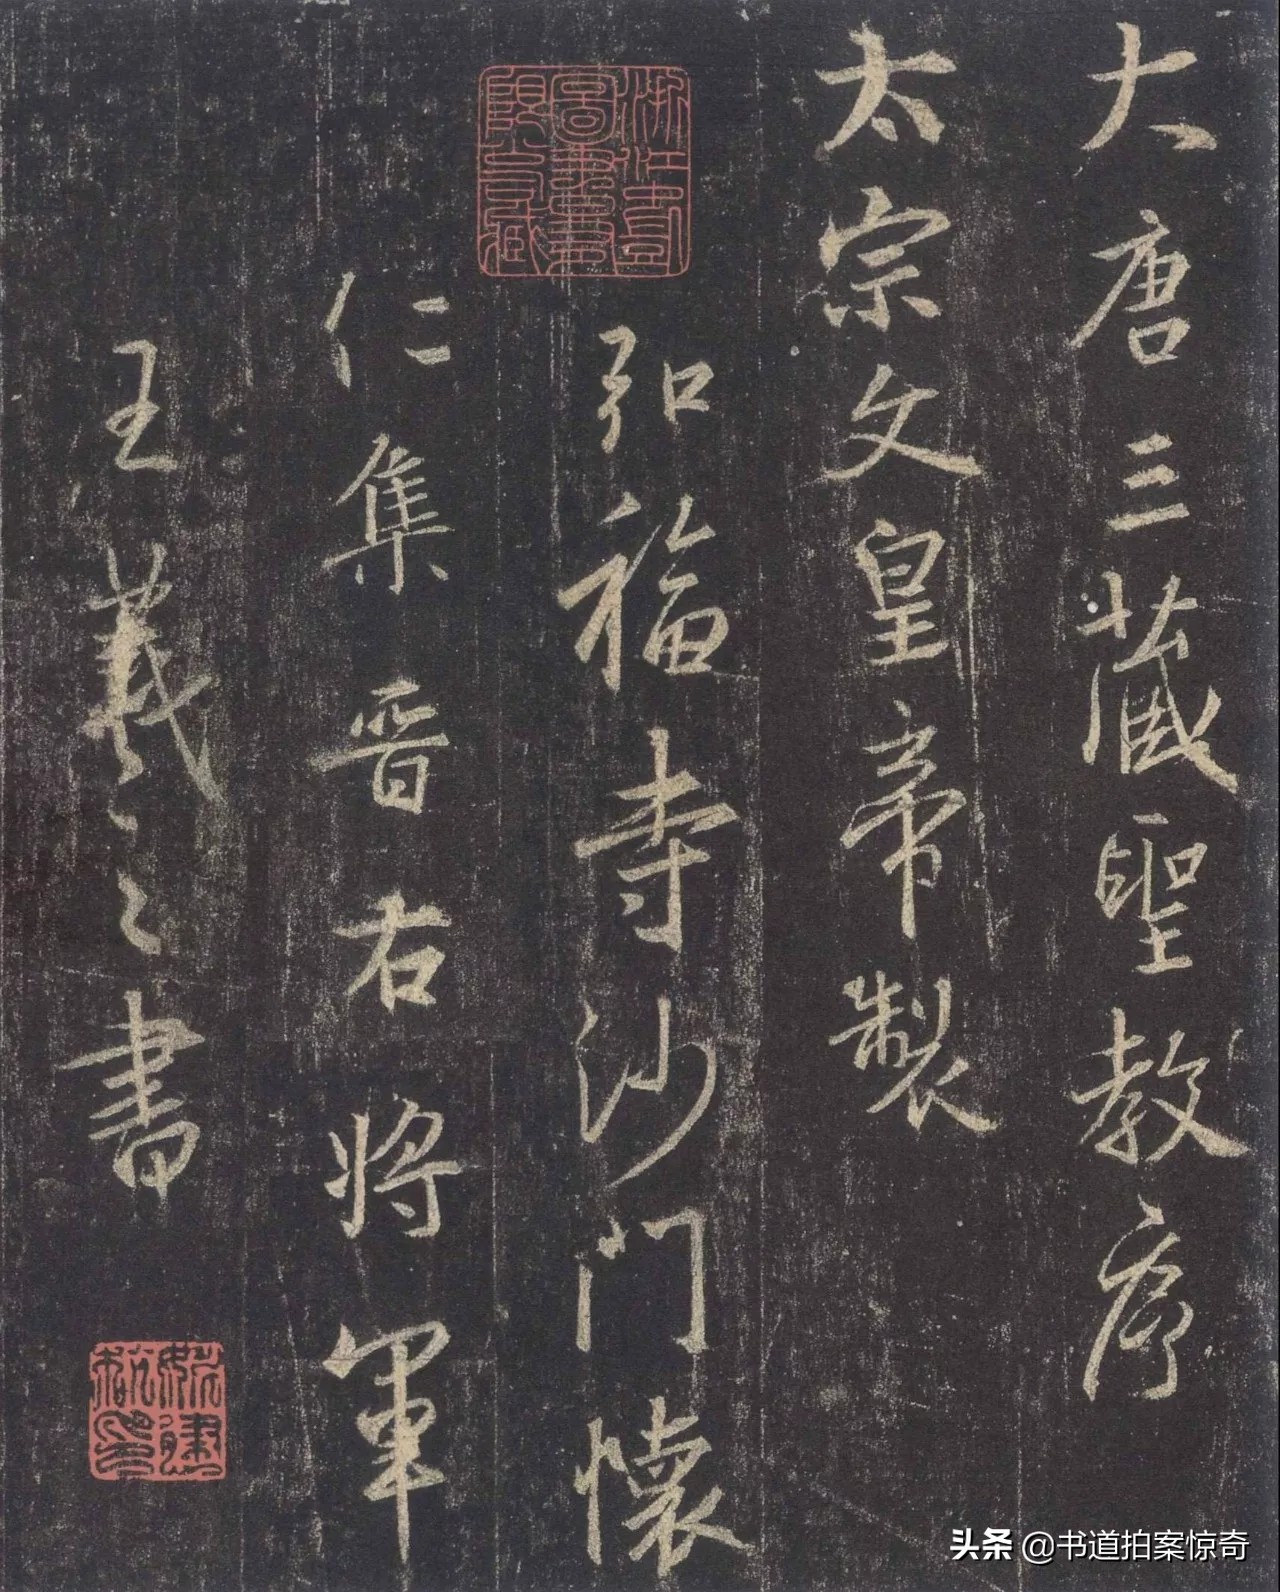 大唐三藏聖教序
太宗文皇帝製
弘福寺沙門懷
仁集晉右將軍
王羲之書
头条 @书道拍案惊奇